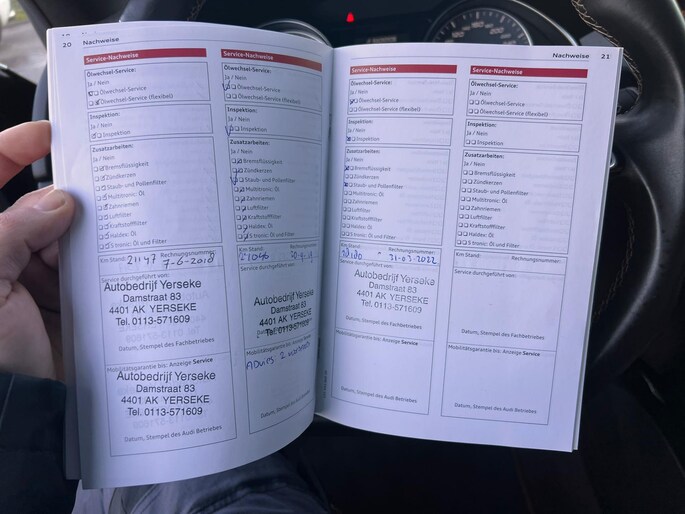 20 Nachweise
Service-Nachweise
Ölwechsel-Service:
Ja / Nein
Ölwechsel-Service
Ölwechsel-Service (flexibel)
Inspektion:
Ja / Nein
Inspektion
Zusatzarbeiten:
Ja / Nein
Bremsflüssigkeit
Zündkerzen
Staub- und Pollenfilter
Multitronic: Öl
Zahnriemen
Luftfilter
Kraftstofffilter
Haldex: Öl
S tronic: Öl und Filter
Km Stand: Rechnungsnummer:
21147 7-6-2018
Service durchgeführt von:
Autobedrijf Yerseke
Damstraat 83
4401 AK YERSEKE
Tel. 0113-571609
Datum, Stempel des Fachbetriebes
Mobilitätsgarantie bis: Anzeige Service
Autobedrijf Yerseke
Damstraat 83
4401 AK YERSEKE
Tel. 0113-571609
Datum, Stempel des Audi Betriebes
Service-Nachweise
Ölwechsel-Service:
Ja / Nein
Ölwechsel-Service
Ölwechsel-Service (flexibel)
Inspektion:
Ja / Nein
Inspektion
Zusatzarbeiten:
Ja / Nein
Bremsflüssigkeit
Zündkerzen
Staub- und Pollenfilter
Multitronic: Öl
Zahnriemen
Luftfilter
Kraftstofffilter
Haldex: Öl
S tronic: Öl und Filter
Km Stand: Rechnungsnummer:
Service durchgeführt von:
Autobedrijf Yerseke
Damstraat 83
4401 AK YERSEKE
Tel. 0113-571609
Datum, Stempel des Fachbetriebes
Mobilitätsgarantie bis: Anzeige
Datum, Stempel des Audi Betriebes
Nachweise 21
Service-Nachweise
Ölwechsel-Service:
Ja / Nein
Ölwechsel-Service
Ölwechsel-Service (flexibel)
Inspektion:
Ja / Nein
Inspektion
Zusatzarbeiten:
Ja / Nein
Bremsflüssigkeit
Zündkerzen
Staub- und Pollenfilter
Multitronic: Öl
Zahnriemen
Luftfilter
Kraftstofffilter
Haldex: Öl
S tronic: Öl und Filter
Km Stand: Rechnungsnummer:
31-03-2022
Service durchgeführt von:
Autobedrijf Yerseke
Damstraat 83
4401 AK YERSEKE
Tel. 0113-571609
Datum, Stempel des Fachbetriebes
Mobilitätsgarantie bis: Anzeige Service
Datum, Stempel des Audi Betriebes
Service-Nachweise
Ölwechsel-Service:
Ja / Nein
Ölwechsel-Service
Ölwechsel-Service (flexibel)
Inspektion:
Ja / Nein
Inspektion
Zusatzarbeiten:
Ja / Nein
Bremsflüssigkeit
Zündkerzen
Staub- und Pollenfilter
Multitronic: Öl
Zahnriemen
Luftfilter
Kraftstofffilter
Haldex: Öl
S tronic: Öl und Filter
Km Stand: Rechnungsnummer:
Service durchgeführt von:
Datum, Stempel des Fachbetriebes
Mobilitätsgarantie bis: Anzeige Service
Datum, Stempel des Audi Betriebes